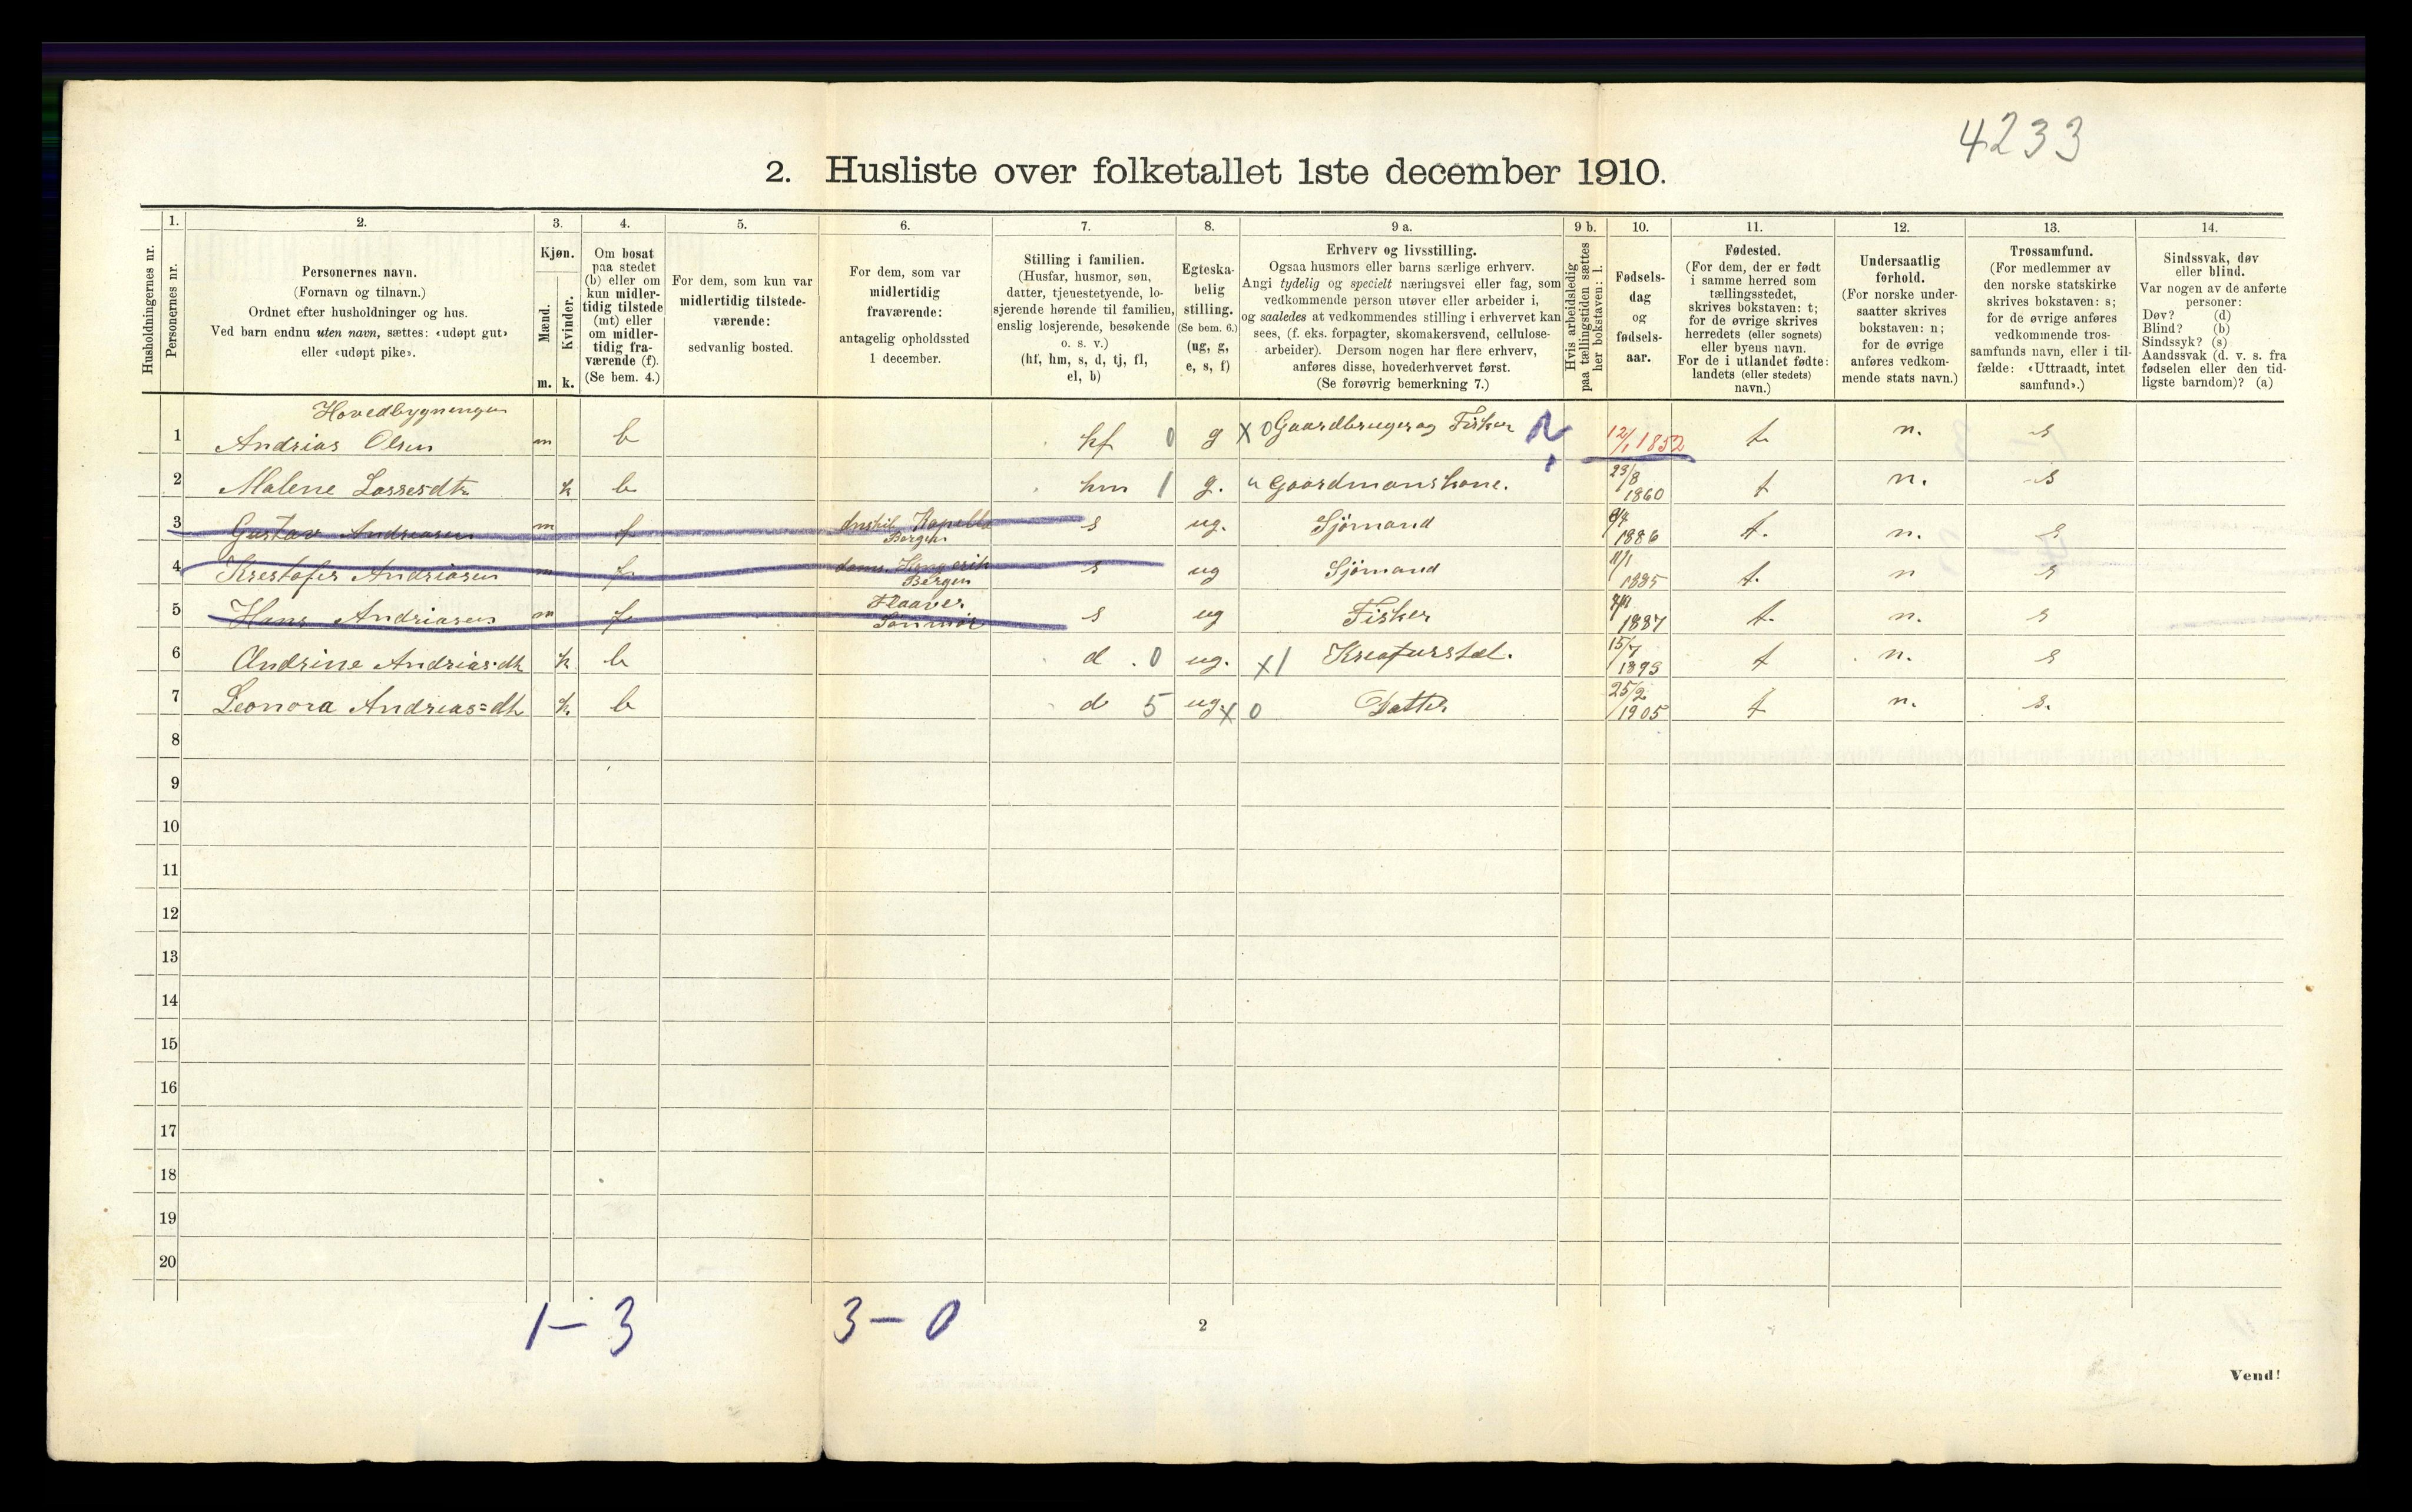 4233
2. Husliste over folketallet 1ste december 1910.
Husholdningernes nr.
1.
Personernes nr.
2.
Personernes navn.
(Fornavn og tilnavn.)
Ordnet efter husholdninger og hus.
Ved barn endnu uten navn, sættes: «udøpt gut»
eller «udøpt pike».
3.
Kjøn.
Mænd.
Kvinder.
m. k.
4.
Om bosat
paa stedet
(b) eller om
kun midler-
tidig tilstede
(mt) eller
om midler-
tidig fra-
værende (f).
(Se bem. 4.)
5.
For dem, som kun var
midlertidig tilstede-
værende:
sedvanlig bosted.
6.
For dem, som var
midlertidig
fraværende:
antagelig opholdssted
1 december.
7.
Stilling i familien.
(Husfar, husmor, søn,
datter, tjenestetyende, lo-
sjerende hørende til familien,
enslig losjerende, besøkende
o. s. v.)
(hf, hm, s, d, tj, fl,
el, b)
8.
Egteska-
belig
stilling.
(Se bem. 6.)
(ug, g,
e, s, f)
9 a.
Erhverv og livsstilling.
Ogsaa husmors eller barns særlige erhverv.
Angi tydelig og specielt næringsvei eller fag, som
vedkommende person utøver eller arbeider i,
og saaledes at vedkommendes stilling i erhvervet kan
sees, (f. eks. forpagter, skomakersvend, cellulose-
arbeider). Dersom nogen har flere erhverv,
anføres disse, hovederhvervet først.
(Se forøvrig bemerkning 7.)
9 b.
Hvis arbeidsledig
paa tællingstiden sættes
her bokstaven: l.
10.
Fødsels-
dag
og
fødsels-
aar.
11.
Fødested.
(For dem, der er født
i samme herred som
tællingsstedet,
skrives bokstaven: t;
for de øvrige skrives
herredets (eller sognets)
eller byens navn.
For de i utlandet fødte:
landets (eller stedets)
navn.)
12.
Undersaatlig
forhold.
(For norske under-
saatter skrives
bokstaven: n;
for de øvrige
anføres vedkom-
mende stats navn.)
13.
Trossamfund.
(For medlemmer av
den norske statskirke
skrives bokstaven: s;
for de øvrige anføres
vedkommende tros-
samfunds navn, eller i til-
fælde: «Uttraadt, intet
samfund».)
14.
Sindssvak, døv
eller blind.
Var nogen av de anførte
personer:
Døv? (d)
Blind? (b)
Sindssyk? (s)
Aandssvak (d. v. s. fra
fødselen eller den tid-
ligste barndom)? (a)
Hovedbygningen
1 Andrias Olsen m b hf 0 g X 0 Gaardbruger og Fisker 12/1 1852 t. n. s
2 Malene Lassesdtr k b hm 1 g. " Gaardmanskone. 23/8 1860 t n. s
3 Gustav Andriasen m f Bergen s ug. Sjømand 1886 t. n. s
4 Krestofer Andriasen m f Bergen s ug Sjømand 11/1 1885 t. n s
5 Hans Andriasen m f s ug Fisker 1887 t. n. s
6 Andrine Andrias:dtr k b d . 0 ug. X1 Kreaturstel. 15/7 1893 t n. s
7 Leonora Andreas=dtr k. b d 5 ug. X 0 Datter 25/2 1905 t n. s.
8
9
10
11
12
13
14
15
16
17
18
19
20
1 - 3 3 - 0
2
Vend!